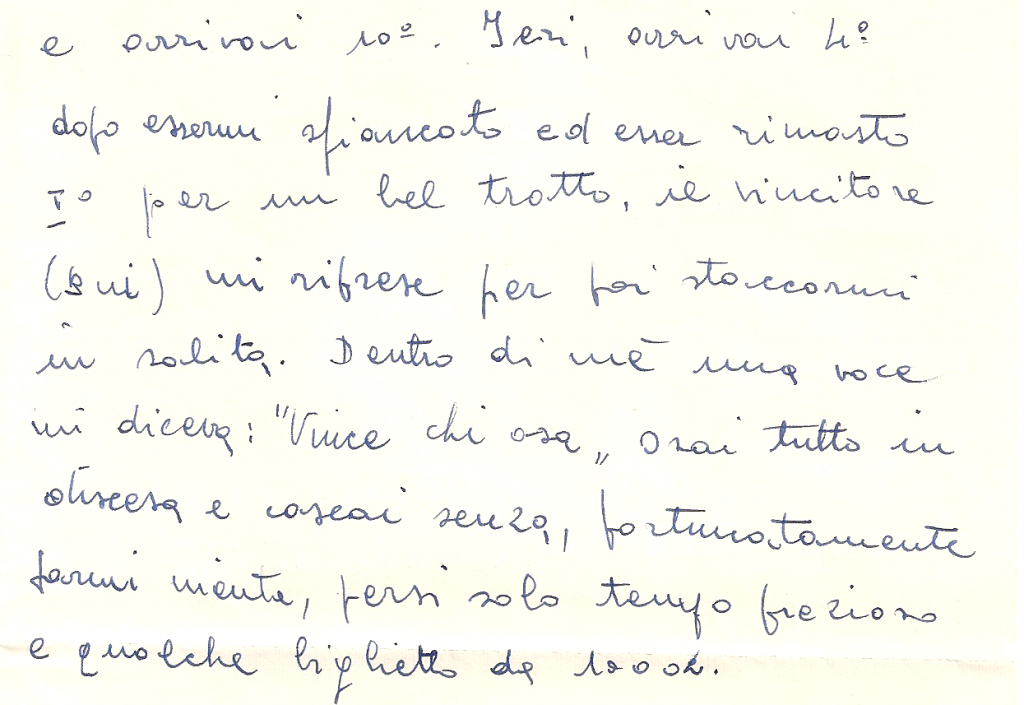 e arrivai 10º. Ieri, arrivai 4º
dopo essermi sfiancato ed esser rimasto
Iº per un bel tratto, il vincitore
(Bui) mi riprese per poi staccarmi
in salita. Dentro di mè una voce
mi diceva: "Vince chi osa„ osai tutto in
discesa e cascai senza, fortunatamente
farmi niente, persi solo tempo prezioso
e qualche biglietto da 1000£.